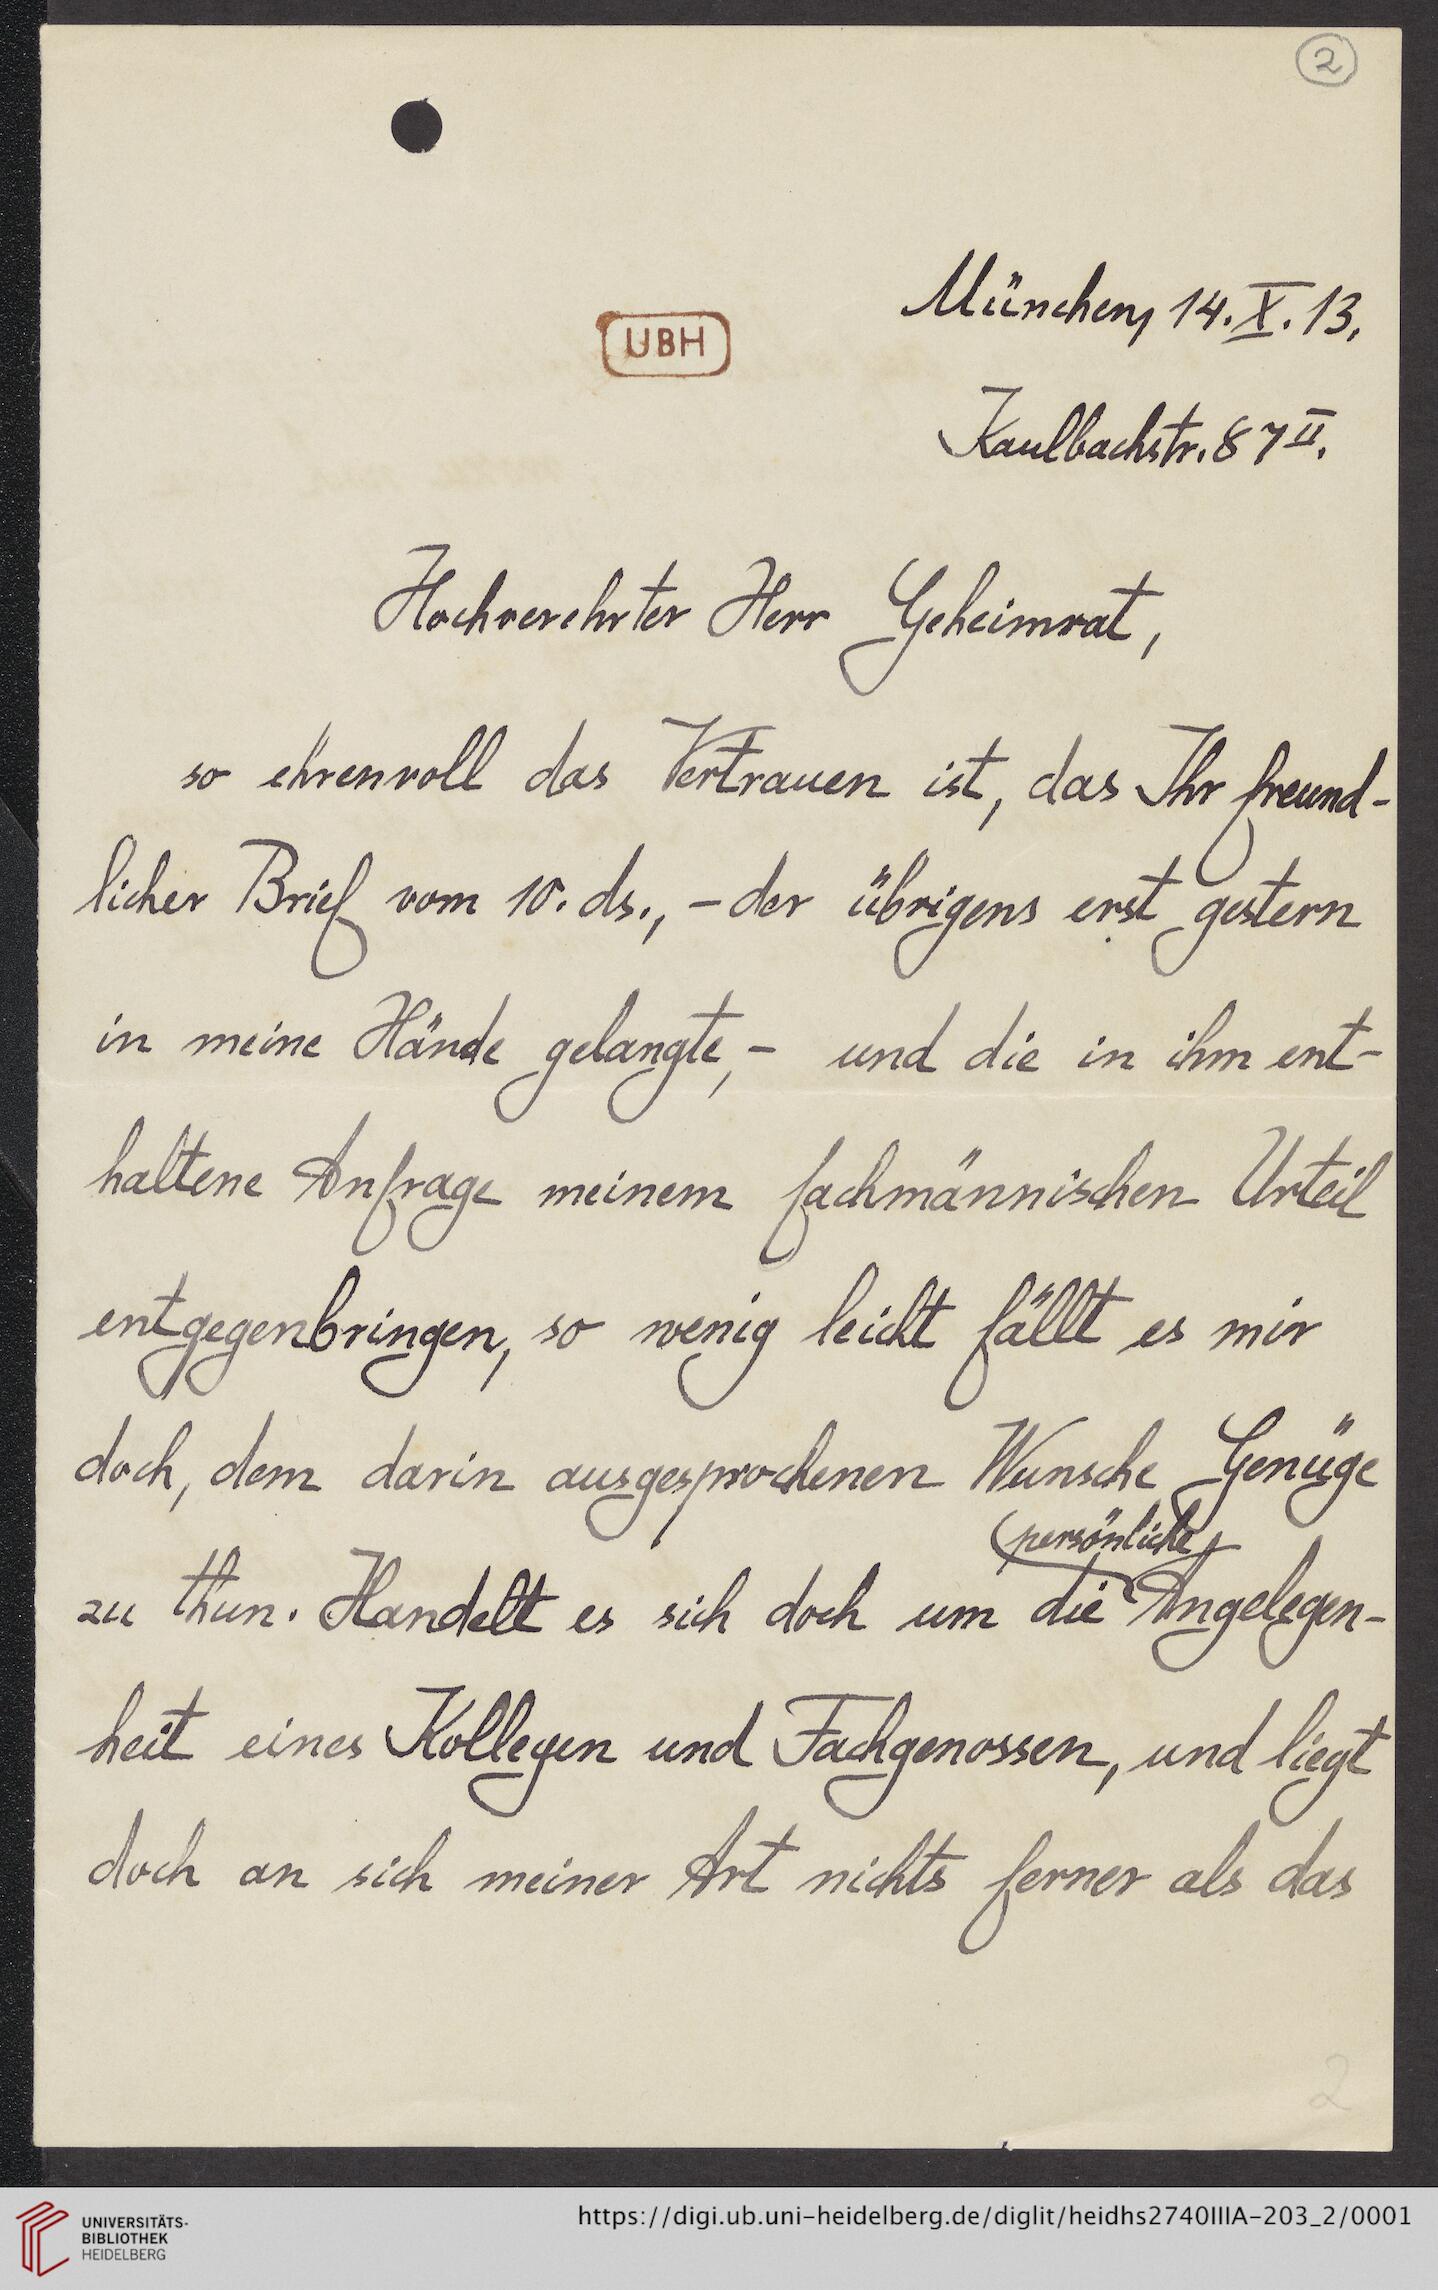 2
München, 14. X. 13.
UBH
Kaulbachstr. 87 II.
Hochverehrter Herr Geheimrat,
so ehrenvoll das Vertrauen ist, das Ihr freund-
licher Brief vom 10. ds., - der übrigens erst gestern
in meine Hände gelangte, - und die in ihm ent-
haltene Anfrage meinem fachmännischen Urteil
entgegenbringen, so wenig leicht fällt es mir
doch, dem darin ausgesprochenen Wunsche Genüge
persönliche
zu thun. Handelt es sich doch um die Angelegen-
heit eines Kollegen und Fachgenossen, und liegt
doch an sich meiner Art nichts ferner als das
2
UNIVERSITÄTS-
BIBLIOTHEK
HEIDELBERG
https://digi.ub.uni-heidelberg.de/diglit/heidhs2740IIIA-203_2/0001